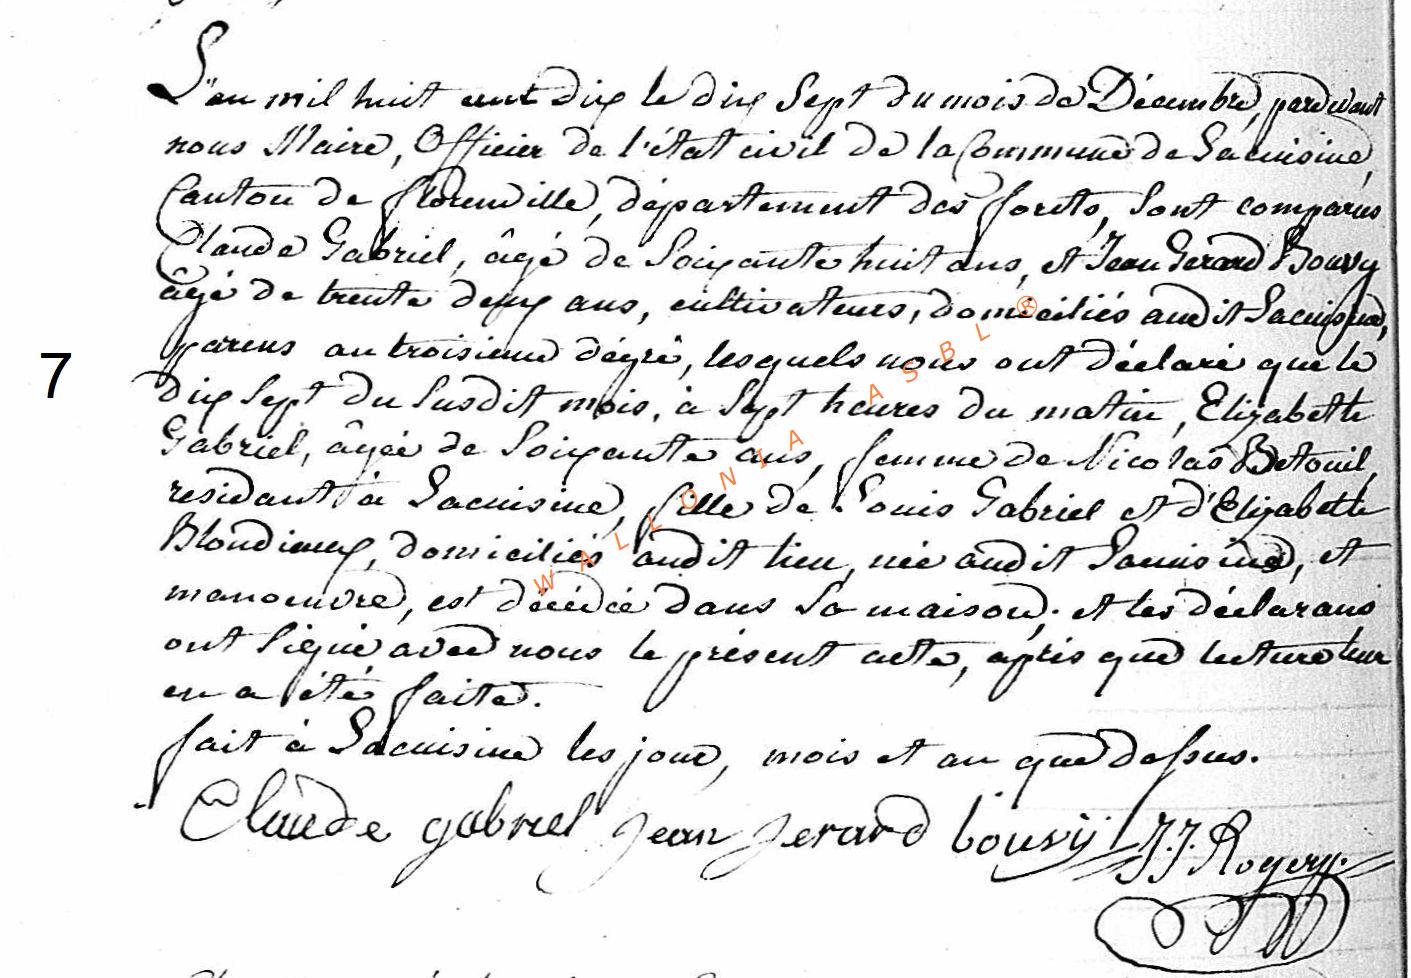 L'an mil huit cent dix le dix Sept du mois de Décembre, pardevant
nous Maire, Officier de l'état civil de la Commune de Lacuisine,
Canton de florenville, département des forets, Sont comparus
Claude Gabriel, âgé de Soixante huit ans, et Jean Gerard Bouvy
âgé de trente deux ans, cultivateurs, domiciliés audit Lacuisine,
parens au troisieme dégré, lesquels nous ont déclaré que le
7
dix Sept du Susdit mois, à Sept heures du matin, Elizabette
Gabriel, âgée de Soixante ans, femme de Nicolas Betouil,
residant à Lacuisine, fille de Louis Gabriel et d'Elizabette
Blondieux, domiciliés audit lieu, née audit Lacuisine, et
manoeuvre, est décédée dans Sa maison, et les déclarans
ont Signé avec nous le présent acte, après que lecture leur
en a été faite.
fait à Lacuisine les jour, mois et an que dessus.
Claude gabriel Jean Jerard bouvÿ J.J. Rogery.
WALLONIA ASBL ®